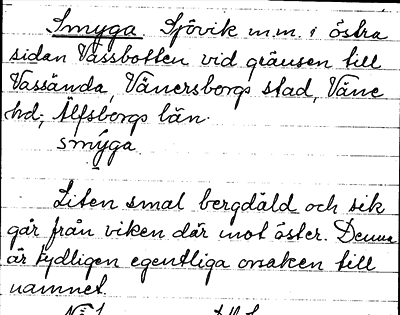 Smyga. Sjövik m.m. i östra
sidan Vassbotten vid gränsen till
Vassända, Vänersborgs stad, Väne
hd; Älfsborgs län.
smýga
Liten smal bergdåld och sik
går från viken där mot öster. Denna
är tydligen egentliga orsaken till
namnet.